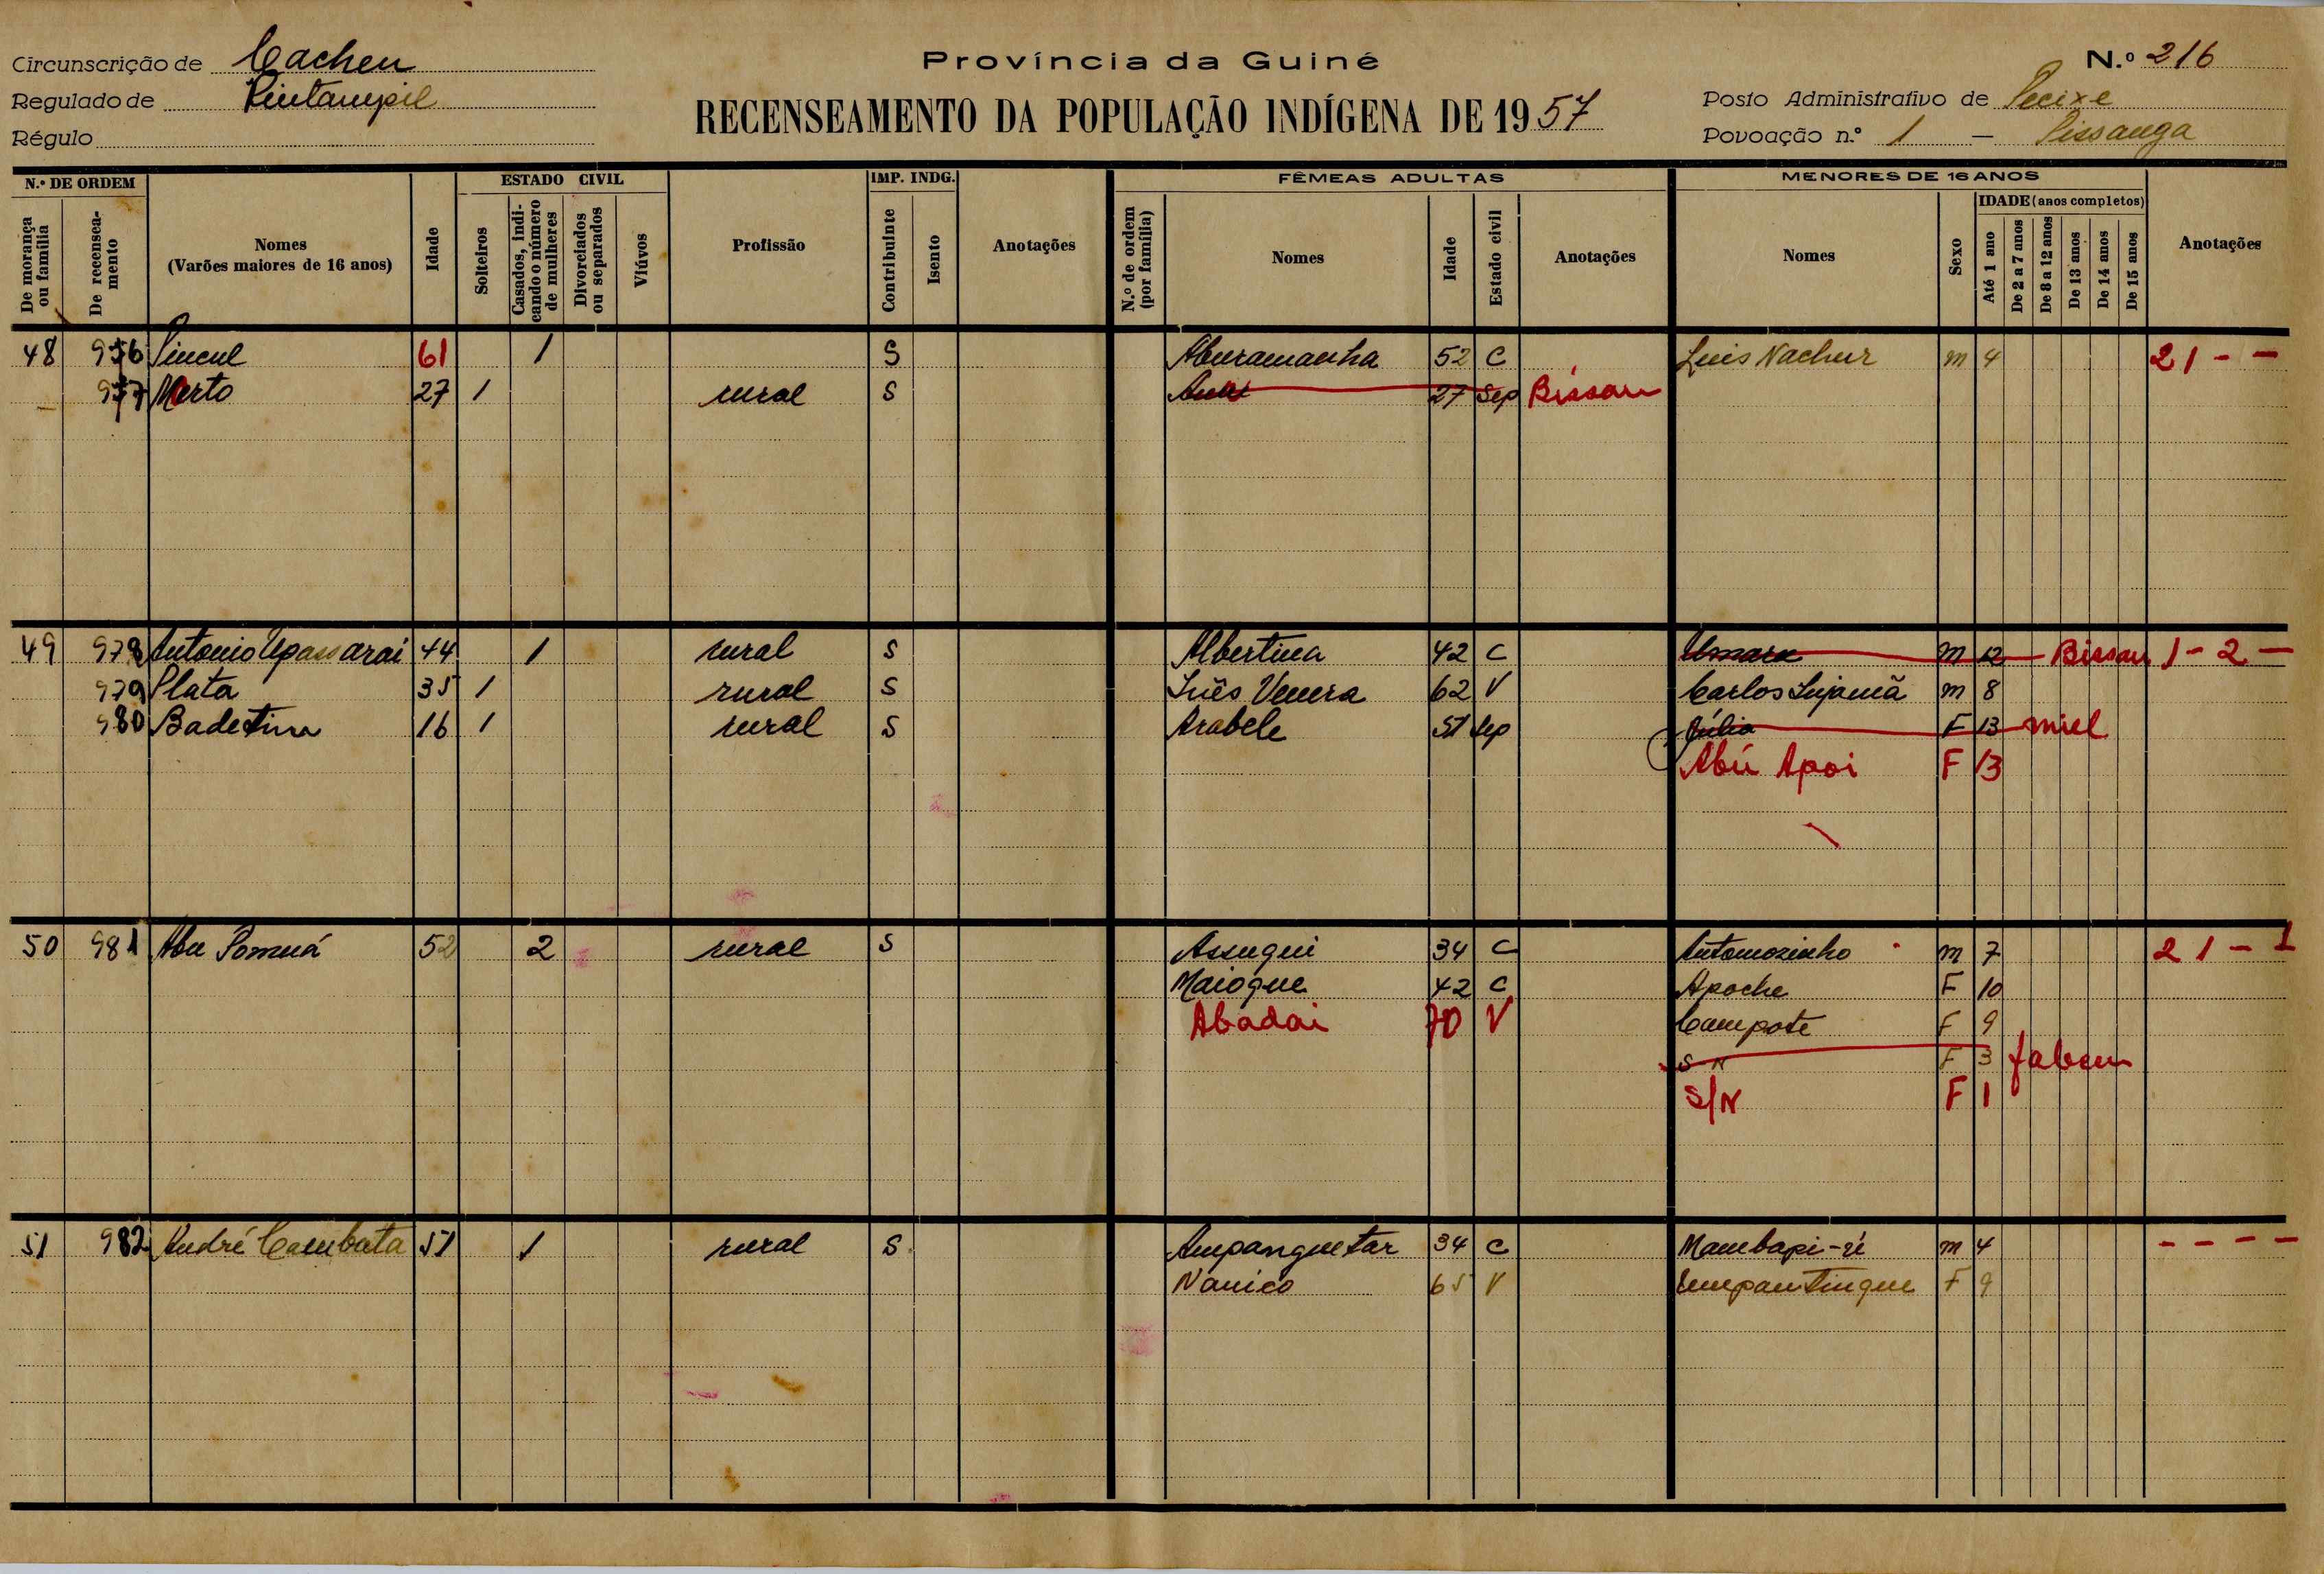 Província da Guiné
N.º 216
Circunscrição de Cacheu
Regulado de Pintampil
Régulo
RECENSEAMENTO DA POPULAÇÃO INDÍGENA DE 1957
Posto Administrativo de Pecixe
Povoação n.º 1 — Pissanga
N.º DE ORDEM
De morança ou família
De recenseamento
Nomes
(Varões maiores de 16 anos)
Idade
ESTADO CIVIL
Solteiros
Casados, indicando o número de mulheres
Divorciados ou separados
Viúvos
Profissão
IMP. INDG.
Contribuinte
Isento
Anotações
FÊMEAS ADULTAS
N.º de ordem (por família)
Nomes
Idade
Estado civil
Anotações
MENORES DE 16 ANOS
Nomes
Sexo
IDADE (anos completos)
Até 1 ano
De 2 a 7 anos
De 8 a 12 anos
De 13 anos
De 14 anos
De 15 anos
Anotações
48 976 Pincul 61 1 S Aburamanha 52 C Luis Nachur m 4 2 1 - -
977 Merto 27 1 rural S 27 Sep Bissau
49 978 Antonio Upassarai 44 1 rural S Albertina 42 C Umara m 12 Bissau 1 - 2 -
979 Plata 35 1 rural S Inês Venera 62 V Carlos Injamã m 8
980 Badetim 16 1 rural S Arabele 51 Sep Júlia F 13 miel
Abú Apoi F 13
50 981 Abu Pomuá 52 2 rural S Assugui 34 C Antoniozinho m 7 2 1 - 1
Maioque 42 C Apoche F 10
Abadai 70 V Campote F 9
S N F 3 falceu
S/N F 1
51 982 André Cambata 51 1 rural S Ampanguetar 34 C Mambapi-ri m 4 - - - -
Nanico 65 V Empantingue F 9